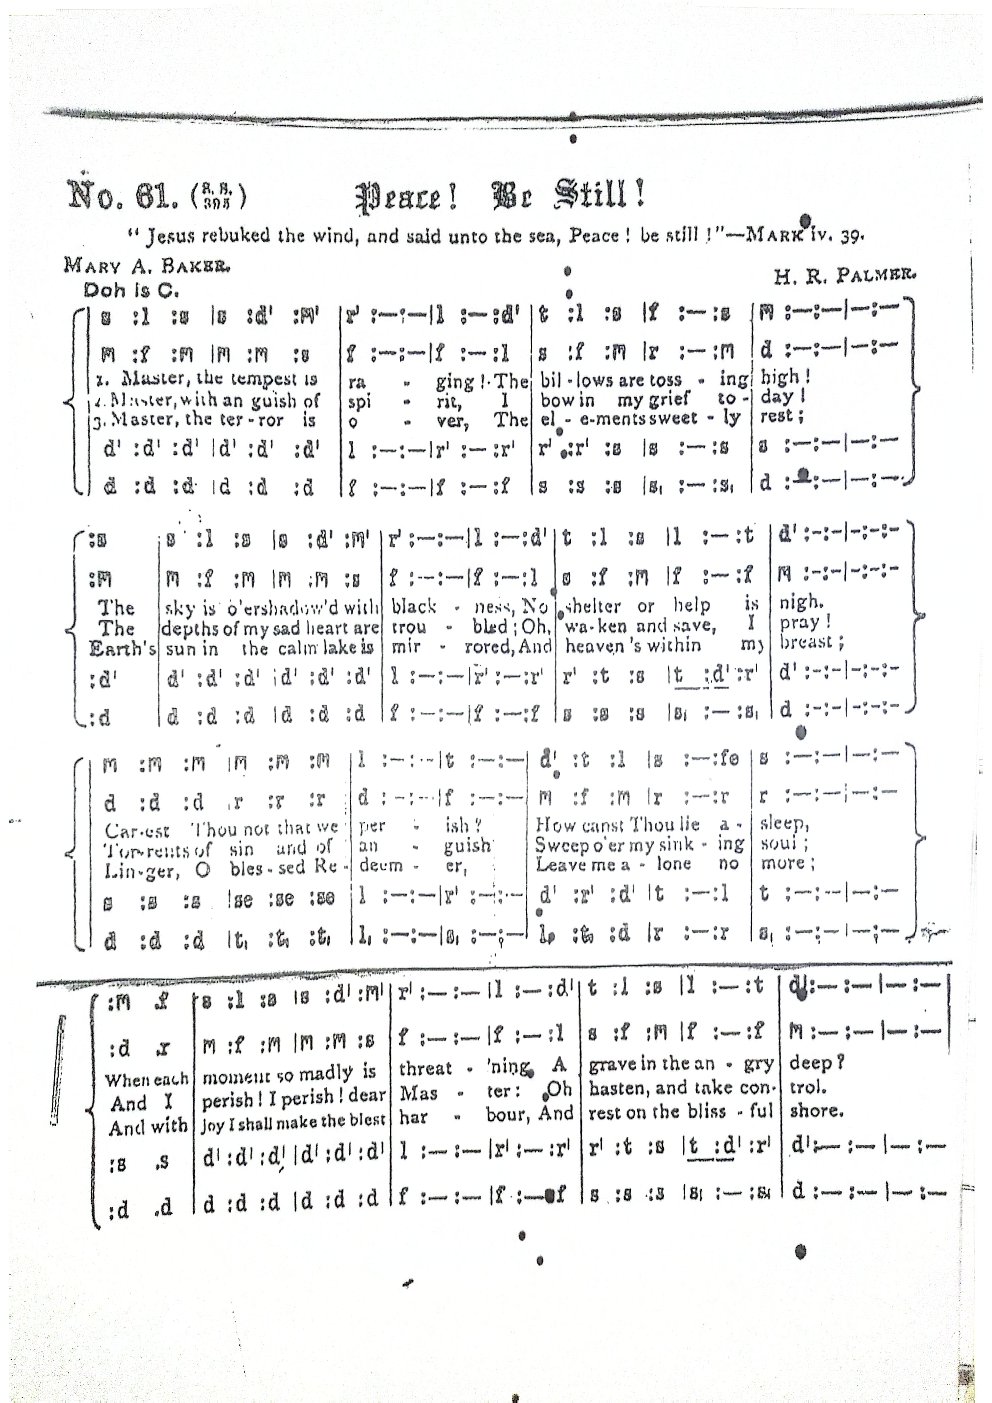 No. 61. (S. S. 395) Peace! Be Still!
"Jesus rebuked the wind, and said unto the sea, Peace! be still!"—MARK iv. 39.
MARY A. BAKER.
H. R. PALMER.
Doh is C.
s :l :s |s :d' :m' | r' :—:—|l :—:d' | t :l :s |f :—:s | m :—:—|—:—:—
m :f :m |m :m :s | f :—:—|f :—:l | s :f :m |r :—:m | d :—:—|—:—:—
1. Master, the tempest is ra - ging! The bil-lows are toss - ing high!
2. Master, with an guish of spi - rit, I bow in my grief to - day!
3. Master, the ter-ror is o - ver, The el - e-ments sweet - ly rest;
d' :d' :d' |d' :d' :d' | l :—:—|r' :—:r' | r' :r' :s |s :—:s | s :—:—|—:—:—
d :d :d |d :d :d | f :—:—|f :—:f | s :s :s |s, :—:s, | d :—:—|—:—:—
:s | s :l :s |s :d' :m' | r' :—:—|l :—:d' | t :l :s |l :—:t | d' :-:-|-:-:-
:m | m :f :m |m :m :s | f :—:—|f :—:l | s :f :m |f :—:f | m :-:-|-:-:-
The sky is o'ershadow'd with black - ness, No shelter or help is nigh.
The depths of my sad heart are trou - bled; Oh, wa-ken and save, I pray!
Earth's sun in the calm lake is mir - rored, And heaven's within my breast;
:d' | d' :d' :d' |d' :d' :d' | l :—:—|r' :—:r' | r' :t :s |t :d' :r' | d' :-:-|-:-:-
:d | d :d :d |d :d :d | f :—:—|f :—:f | s :s :s |s, :—:s, | d :-:-|-:-:-
m :m :m |m :m :m | l :—:—|t :—:— | d' :t :l |s :—:fe | s :—:—|—:—:—
d :d :d |r :r :r | d :—:—|f :—:— | m :f :m |r :—:r | r :—:—|—:—:—
Car-est Thou not that we per - ish? How canst Thou lie a - sleep,
Tor-rents of sin and of an - guish Sweep o'er my sink - ing soul;
Lin-ger, O bles-sed Re - deem - er, Leave me a - lone no more;
s :s :s |se :se :se | l :—:—|r' :—:— | d' :r' :d' |t :—:l | t :—:—|—:—:—
d :d :d |t, :t, :t, | l, :—:—|s, :—:— | l, :t, :d |r :—:r | s, :—:—|—:—:—
:m .f | s :l :s |s :d' :m' | r' :—:—|l :—:d' | t :l :s |l :—:t | d' :—:—|—:—
:d .r | m :f :m |m :m :s | f :—:—|f :—:l | s :f :m |f :—:f | m :—:—|—:—
When each moment so madly is threat - 'ning, A grave in the an - gry deep?
And I perish! I perish! dear Mas - ter: Oh hasten, and take con- trol.
And with joy I shall make the blest har - bour, And rest on the bliss - ful shore.
:s .s | d' :d' :d' |d' :d' :d' | l :—:—|r' :—:r' | r' :t :s |t :d' :r' | d' :—:—|—:—
:d .d | d :d :d |d :d :d | f :—:—|f :—:f | s :s :s |s, :—:s, | d :—:—|—:—